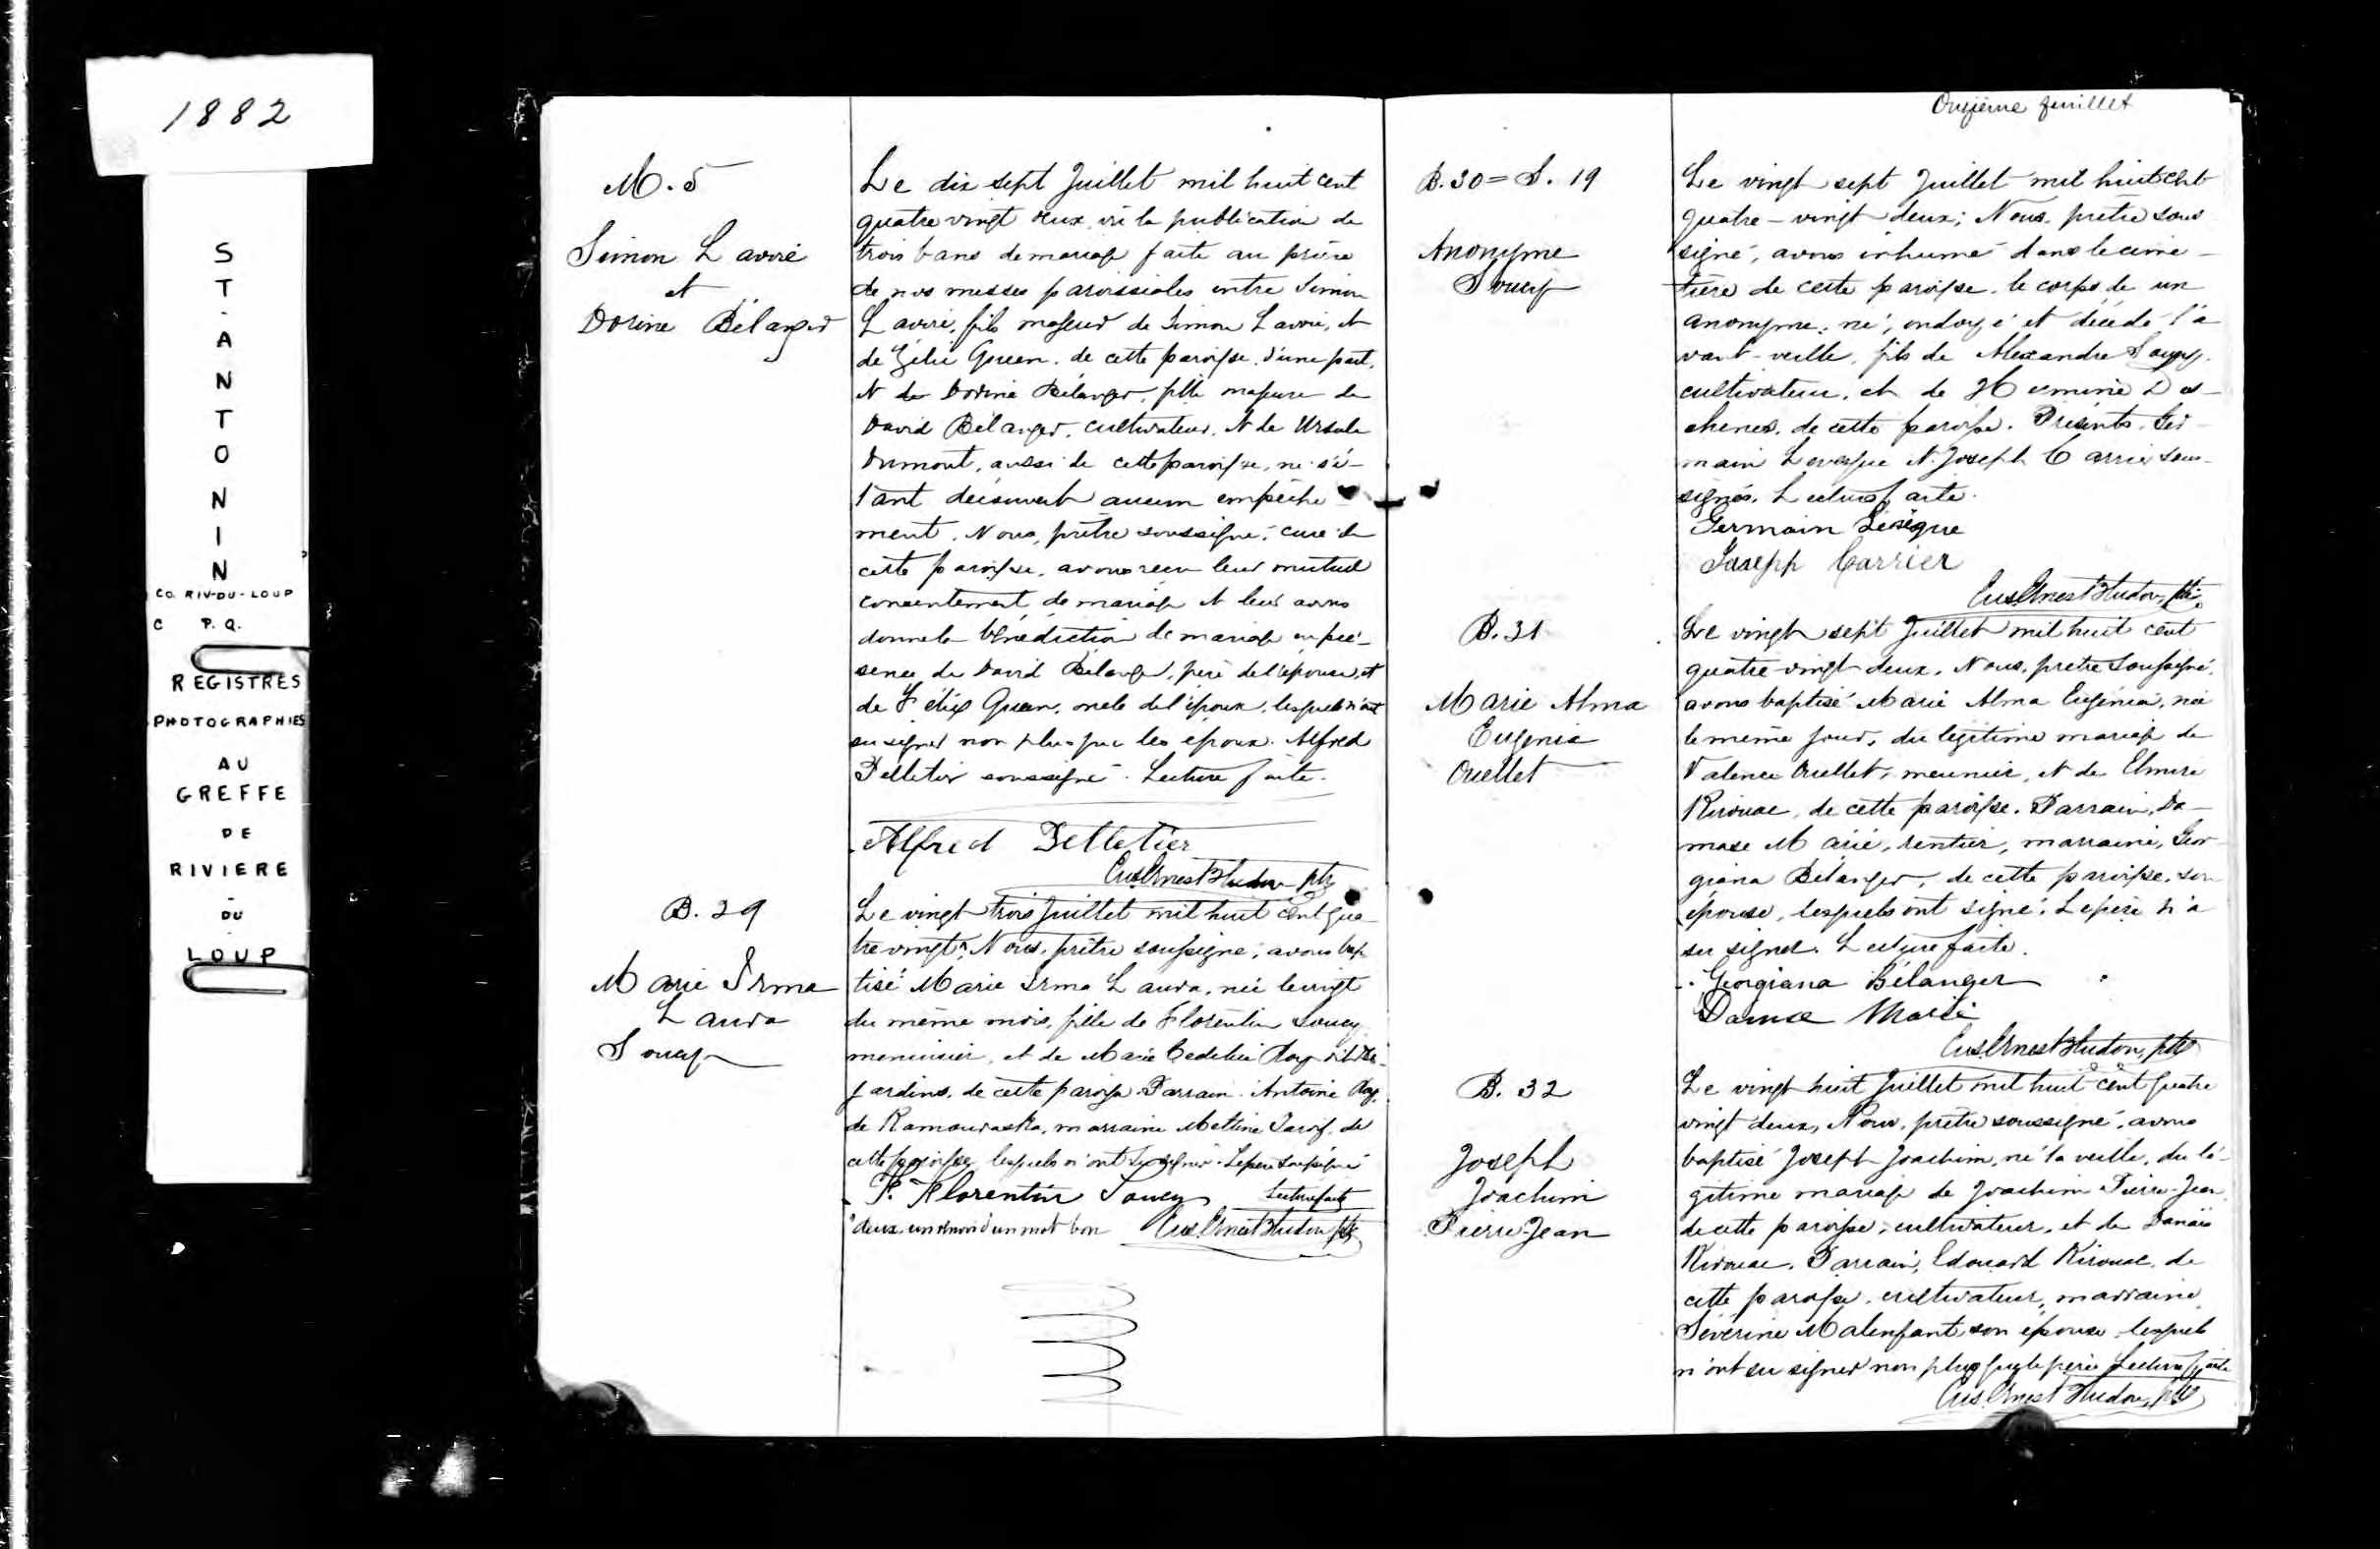 1882
ST-ANTONIN
CO. RIV-DU-LOUP
C P.Q.
REGISTRES
PHOTOGRAPHIES
AU
GREFFE
DE
RIVIERE
-
DU
-
LOUP
M. 5
Simon Lavoie
et
Dorine Bélanger
Le dix sept Juillet mil huit cent
quatre vingt deux, vu la publication de
trois bans de mariage faite au prône
de nos messes paroissiales entre Simon
Lavoie, fils majeur de Simon Lavoie, et
de Zélie Queen, de cette paroisse, d'une part,
et de Dorine Bélanger, fille majeure de
David Bélanger, cultivateur, et de Ursule
Dumont, aussi de cette paroisse, ne s'é-
tant découvert aucun empêche
ment, Nous, prêtre soussigné, curé de
cette paroisse, avons reçu leur mutuel
consentement de mariage et leur avons
donné la bénédiction de mariage en pré-
sence de David Bélanger, père de l'épouse, et
de Félix Queen, oncle de l'époux, lesquels n'ont
su signer non plus que les époux. Alfred
Pelletier soussigné. Lecture faite.
Alfred Pelletier
Eus. Ernest Hudon ptre
B. 29
Marie Irma
Lauda
Soucy
Le vingt trois Juillet mil huit cent qua
tre vingt, Nous, prêtre soussigné, avons bap
tisé Marie Irma Lauda, née le vingt
du même mois, fille de Florentin Soucy
menuisier, et de Marie Roy dit Des-
jardins, de cette paroisse. Parrain Antoine Roy,
de Kamouraska, marraine de
cette paroisse lesquels n'ont su signer. Le père soussigné
P. Florentin Soucy Lecture faite
deux, un mot bon Eus. Ernest Hudon ptre
Onzième feuillet
B. 30 = S. 19
Anonyme
Soucy
Le vingt sept Juillet mil huit cent
quatre-vingt deux; Nous, prêtre sous
signé, avons inhumé dans le cime-
tière de cette paroisse, le corps de un
anonyme, né, ondoyé et décédé l'a
vant-veille, fils de Alexandre Soucy,
cultivateur, et de Herménie Des-
chenes, de cette paroisse. Présents, Ger-
main Levesque et Joseph Carrier sous-
signés. Lecture faite.
Germain Levêque
Joseph Carrier
Eus. Ernest Hudon, ptre
B. 31
Marie Alma
Eugenia
Ouellet
Le vingt sept Juillet mil huit cent
quatre-vingt deux, Nous, prêtre soussigné,
avons baptisé Marie Alma Eugénia, née
le même jour, du légitime mariage de
Valence Ouellet, meunier, et de Elmire
Kirouac, de cette paroisse. Parrain, Da-
mase Marié, rentier, marraine, Geor
giana Bélanger, de cette paroisse, son
épouse, lesquels ont signé. Le père n'a
su signer. Lecture faite.
Georgiana Bélanger
Damase Marié
Eus. Ernest Hudon, ptre
B. 32
Joseph
Joachim
Pierre-Jean
Le vingt huit Juillet mil huit cent quatre
vingt deux, Nous, prêtre soussigné, avons
baptisé Joseph Joachim, né la veille, du lé-
gitime mariage de Joachim Pierre-Jean,
de cette paroisse, cultivateur, et de Danaïs
Kirouac. Parrain, Edouard Kirouac, de
cette paroisse, cultivateur, marraine,
Séverine Malenfant son épouse, lesquels
n'ont su signer non plus que le père Lecture faite
Eus. Ernest Hudon, ptre